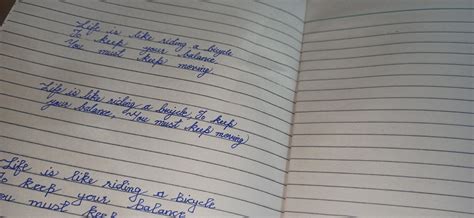 Life is like riding a bicycle
To keep your balance
You must keep moving.
Life is like riding a bicycle, To keep
your balance, You must keep moving
Life is like riding a bicycle
To keep your balance
You must keep